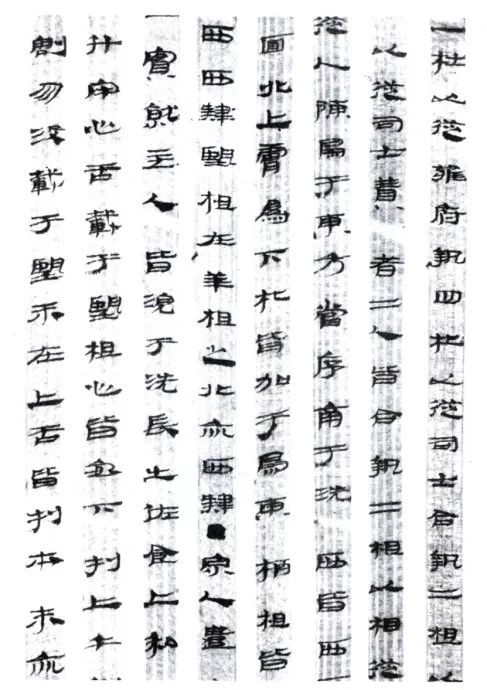 一朼以從雍府執四朼以從司士合執二柤
以從司士昔者二人皆合執二柤以相從
從人陳鼎于東方當序南于洗西皆西
面北上膚為下朼皆加于鼎東柄柤皆
西西肆肵柤在羊柤之北亦西肆■宗人遣
賓就主人皆浼于洗長之佐食上利
升牢心舌載于肵柤心皆安下刌上午
割勿沒載于肵末在上舌皆刌本末亦